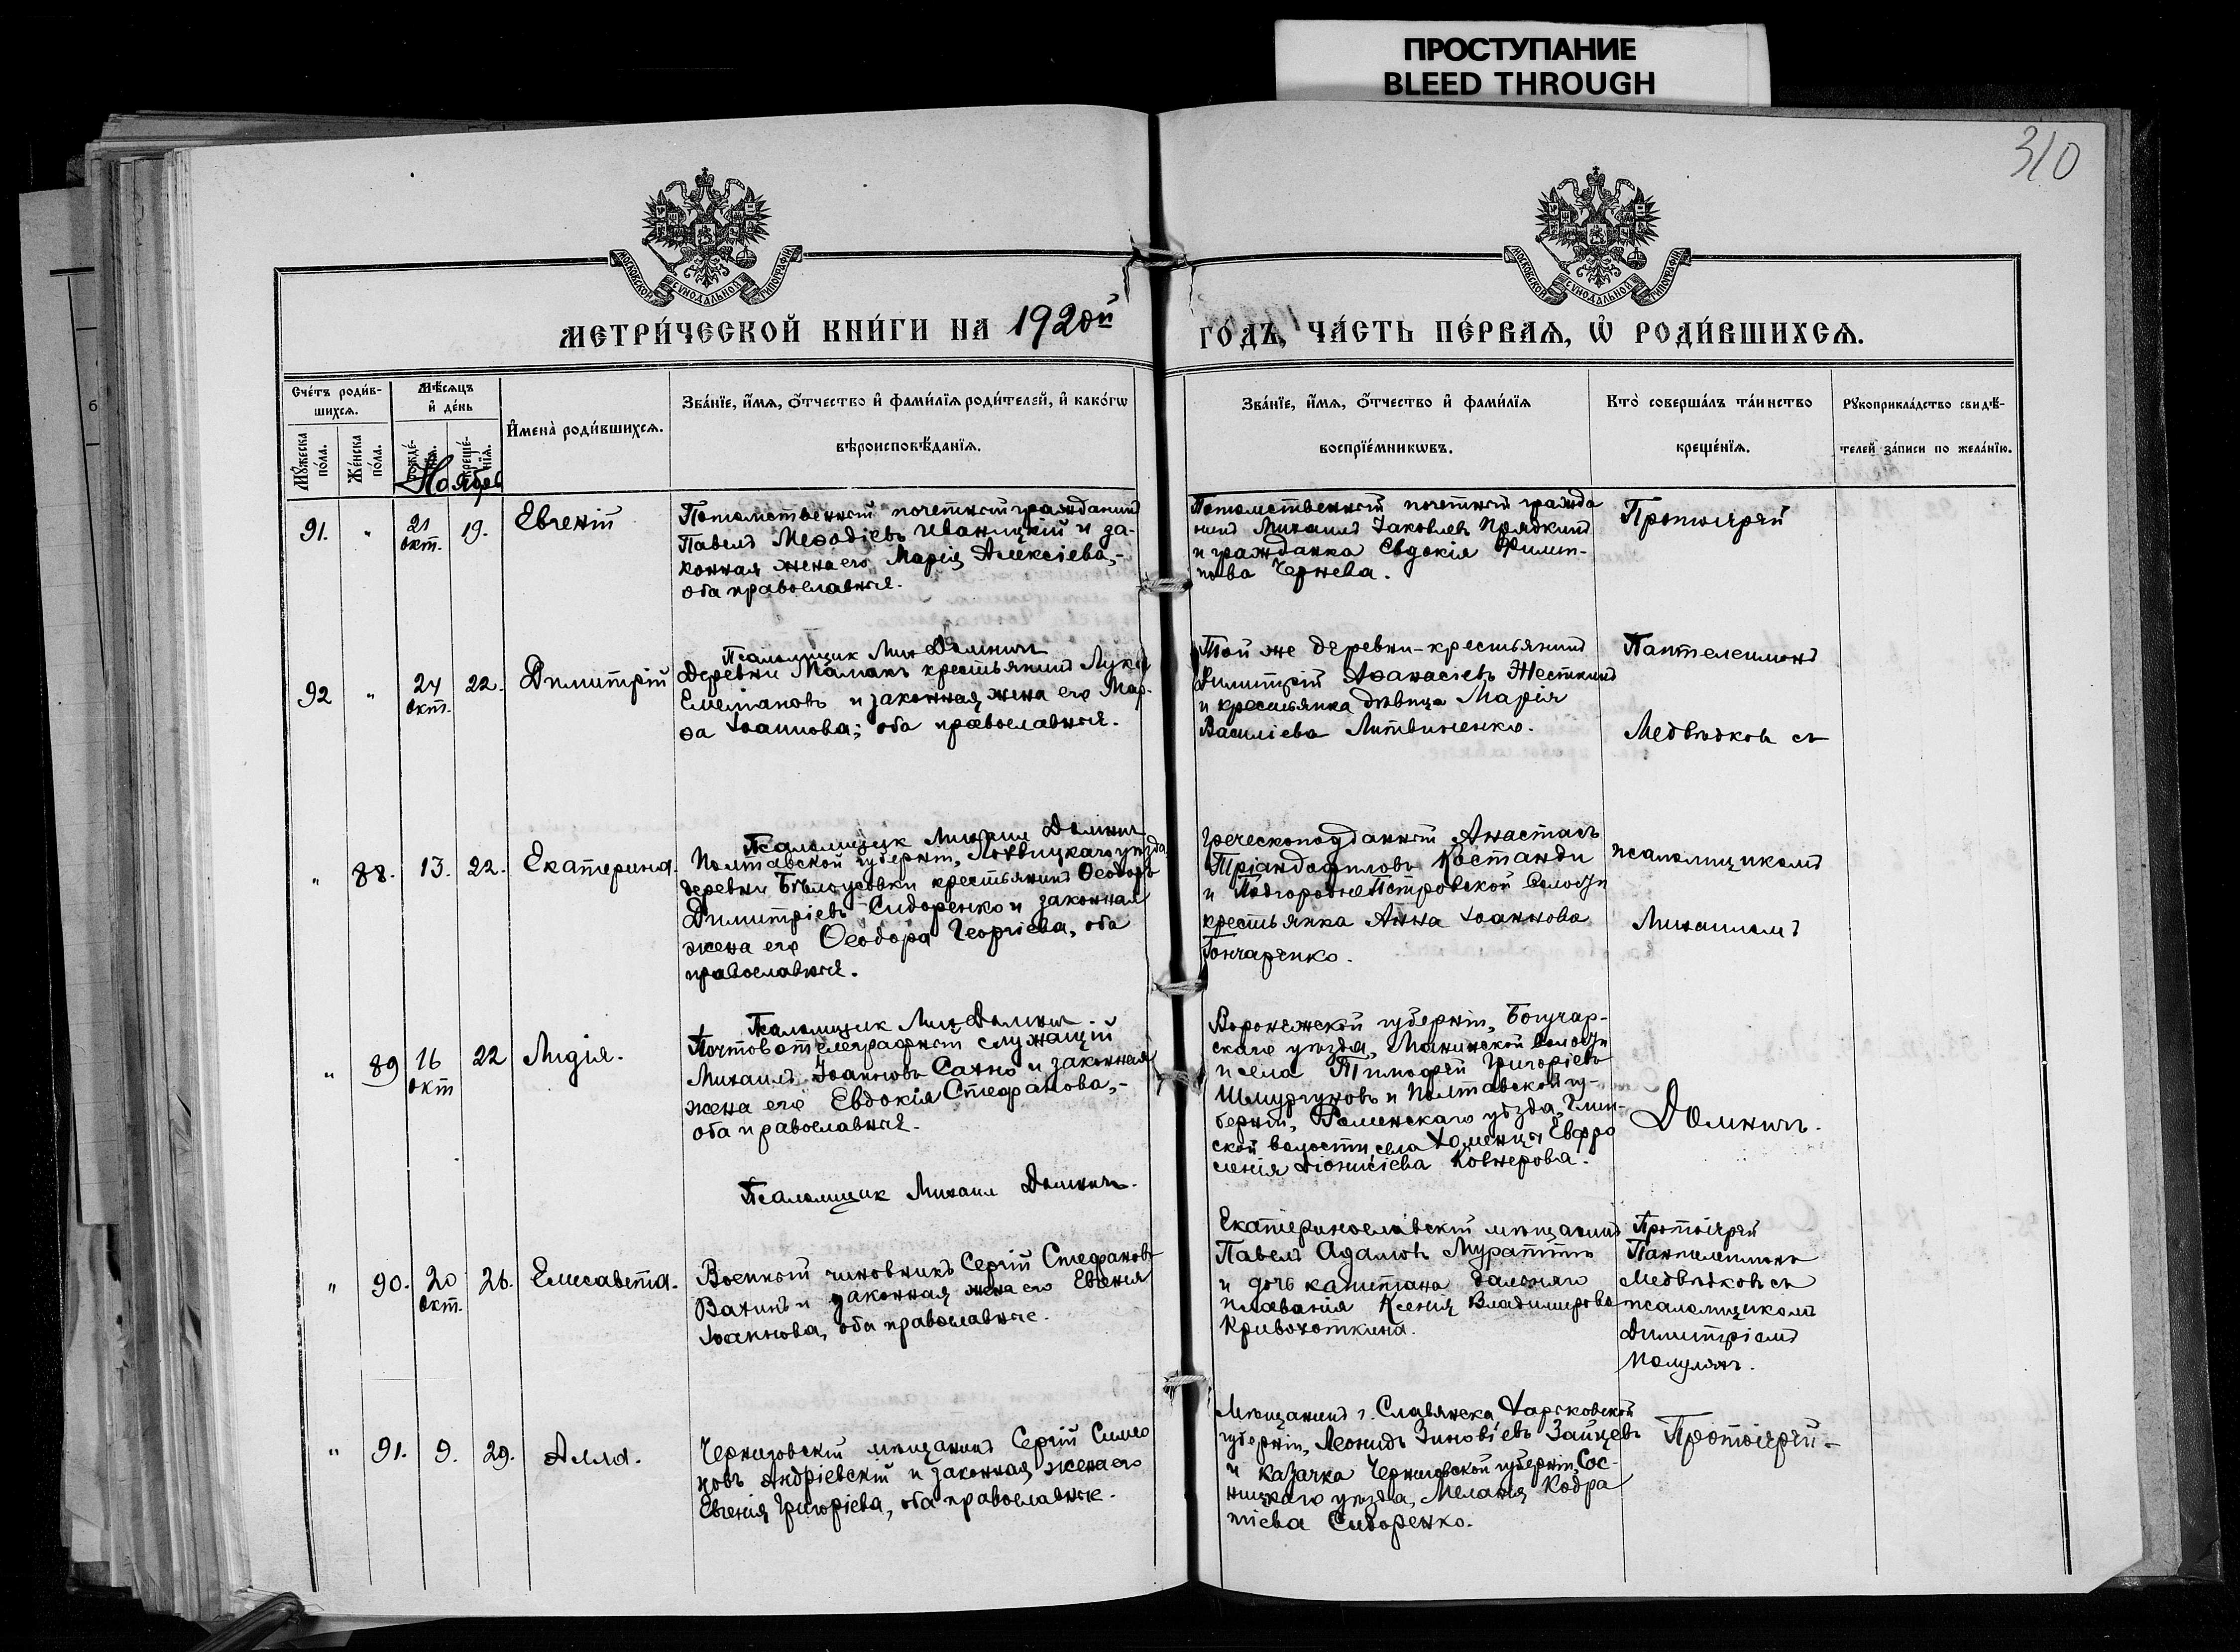 ПРОСТУПАНИЕ
BLEED THROUGH
310
МОСКОВСКОЙ СѴНОДАЛЬНОЙ ТИПОГРАФІИ
МОСКОВСКОЙ СѴНОДАЛЬНОЙ ТИПОГРАФІИ
МЕТРИ́ЧЕСКОЙ КНИ́ГИ НА 1920ой
ГО́ДЪ, ЧА́СТЬ ПЕ́РВАѦ, Ѡ҆ РОДИ́ВШИХСѦ.
Сче́тъ роди́в-
шихсѧ.
Мꙋ́жеска по́ла.
Же́нска по́ла.
Мѣ́сѧцъ
и҆ де́нь
Ноябрь
И҆мена̀ роди́вшихсѧ.
Зва́нїе, и҆́мѧ, ѻ҆́тчество и҆ фами́лїѧ роди́телей, и҆ како́гѡ
вѣроисповѣ́данїѧ.
Зва́нїе, и҆́мѧ, ѻ҆́тчество и҆ фами́лїѧ
воспрїе́мникѡвъ.
Кто̀ соверша́лъ та́инство
креще́нїѧ.
Рꙋкоприкла́дство свидѣ́-
телей за́писи по жела́нїю.
91. " 21 окт. 19. Евгеній
Потомственный почетный гражданинъ
Павелъ Меѳодіевъ Иваницкій и за-
конная жена его Марія Алексіева,-
оба православные.
Потомственный почетный гражда
нинъ Михаилъ Іаковлевъ Прядкинъ
и гражданка Евдокія Филип-
пова Чернева.
Протоіерей
Псаломщик Мих Долинич
92 " 24 окт. 22. Димитрій
Деревни Мамакъ крестьянинъ Лука
Емельяновъ и законная жена его Мар-
ѳа Іоаннова; оба православные.
Той же деревни - крестьянинъ
Димитрій Аѳанасіевъ Жесткинъ
и крестьянка дѣвица Марія
Василіева Литвиненко.
Пантелеимонъ
Медвѣдковъ съ
Псаломщик Михаил Долинич
" 88. 13. 22. Екатерина.
Полтавской губерніи, Лохвицкаго уѣзда,
деревни Бѣлоусовки крестьянинъ Ѳеодоръ
Димитріевъ Сидоренко и законная
жена его Ѳеодора Георгіева, оба
православные.
Греческоподданный Анастасъ
Тріандафиловъ Костанди
и Подгородне Петровской волости
крестьянка Анна Іоаннова
Гончаренко.
псаломщикомъ
Михаиломъ
Псаломщик Мих Долинич
" 89 16 окт 22 Лидія.
Почтовотелеграфный служащій
Михаилъ Іоанновъ Сахно и законная
жена его Евдокія Стефанова,-
оба православные.
Воронежской губерніи, Богучар-
скаго уѣзда, Манинской волости
и села Тимофей Григоріевъ
Шмургуновъ и Полтавской гу-
берніи, Роменскаго уѣзда, Глин-
ской волости, села Хоменцы Евфро
синія Діонисіева Ковнерова.
Долинич.
Псаломщик Михаил Долинич.
" 90. 20 окт. 26. Елисавета.
Военный чиновникъ Сергій Стефановъ
Вахинъ и законная жена его Евгенія
Іоаннова, оба православные.
Екатеринославскій мѣщанинъ
Павелъ Адамовъ Мураттъ
и дочь капитана дальняго
плаванія Ксенія Владимирова
Кривохоткина.
Протоіерей
Пантелеимонъ
Медвѣдковъ съ
псаломщикомъ
Димитріемъ
" 91. 9. 29. Алла.
Черниговскій мѣщанинъ Сергій Симео
новъ Андріевскій и законная жена его
Евгенія Григоріева, оба православные.
Мѣщанинъ г. Славянска Харьковской
губерніи, Леонидъ Зиновіевъ Зайцевъ
и казачка Черниговской губерніи, Сос-
ницкаго уѣзда, Меланія Кодра
тіева Сидоренко.
Протоіерей -